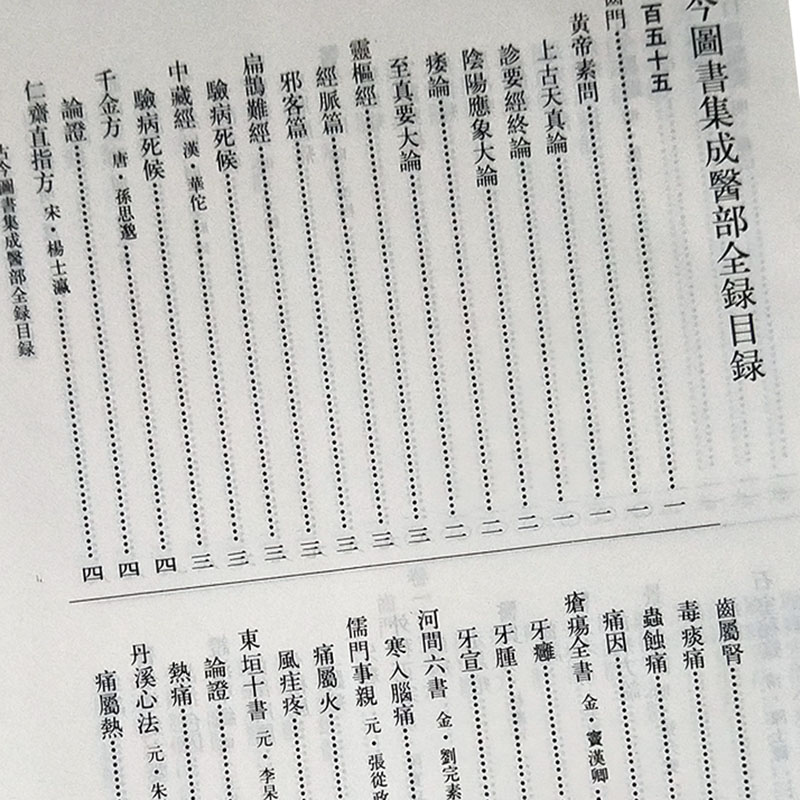 今圖書集成醫部全録目録
百五十五 一
齒門 一
黃帝素問 一
上古天真論 一
診要經終論 二
陰陽應象大論 二
痿論 二
至真要大論 三
靈樞經 三
經脈篇 三
邪客篇 三
扁鵲難經 三
驗病死候 三
中藏經 漢·華佗 三
驗病死候 四
千金方 唐·孫思邈 四
論證 四
仁齋直指方 宋·楊士瀛
古今圖書集成醫部全録目録
齒屬腎
毒痰痛
蟲蝕痛
痛因
瘡瘍全書 金·竇漢卿
牙癰
牙腫
牙宣
河間六書 金·劉完素
寒入腦痛
儒門事親 元·張從政
痛屬火
風疰疼
東垣十書 元·李杲
論證
熱痛
丹溪心法 元·朱
痛屬熱